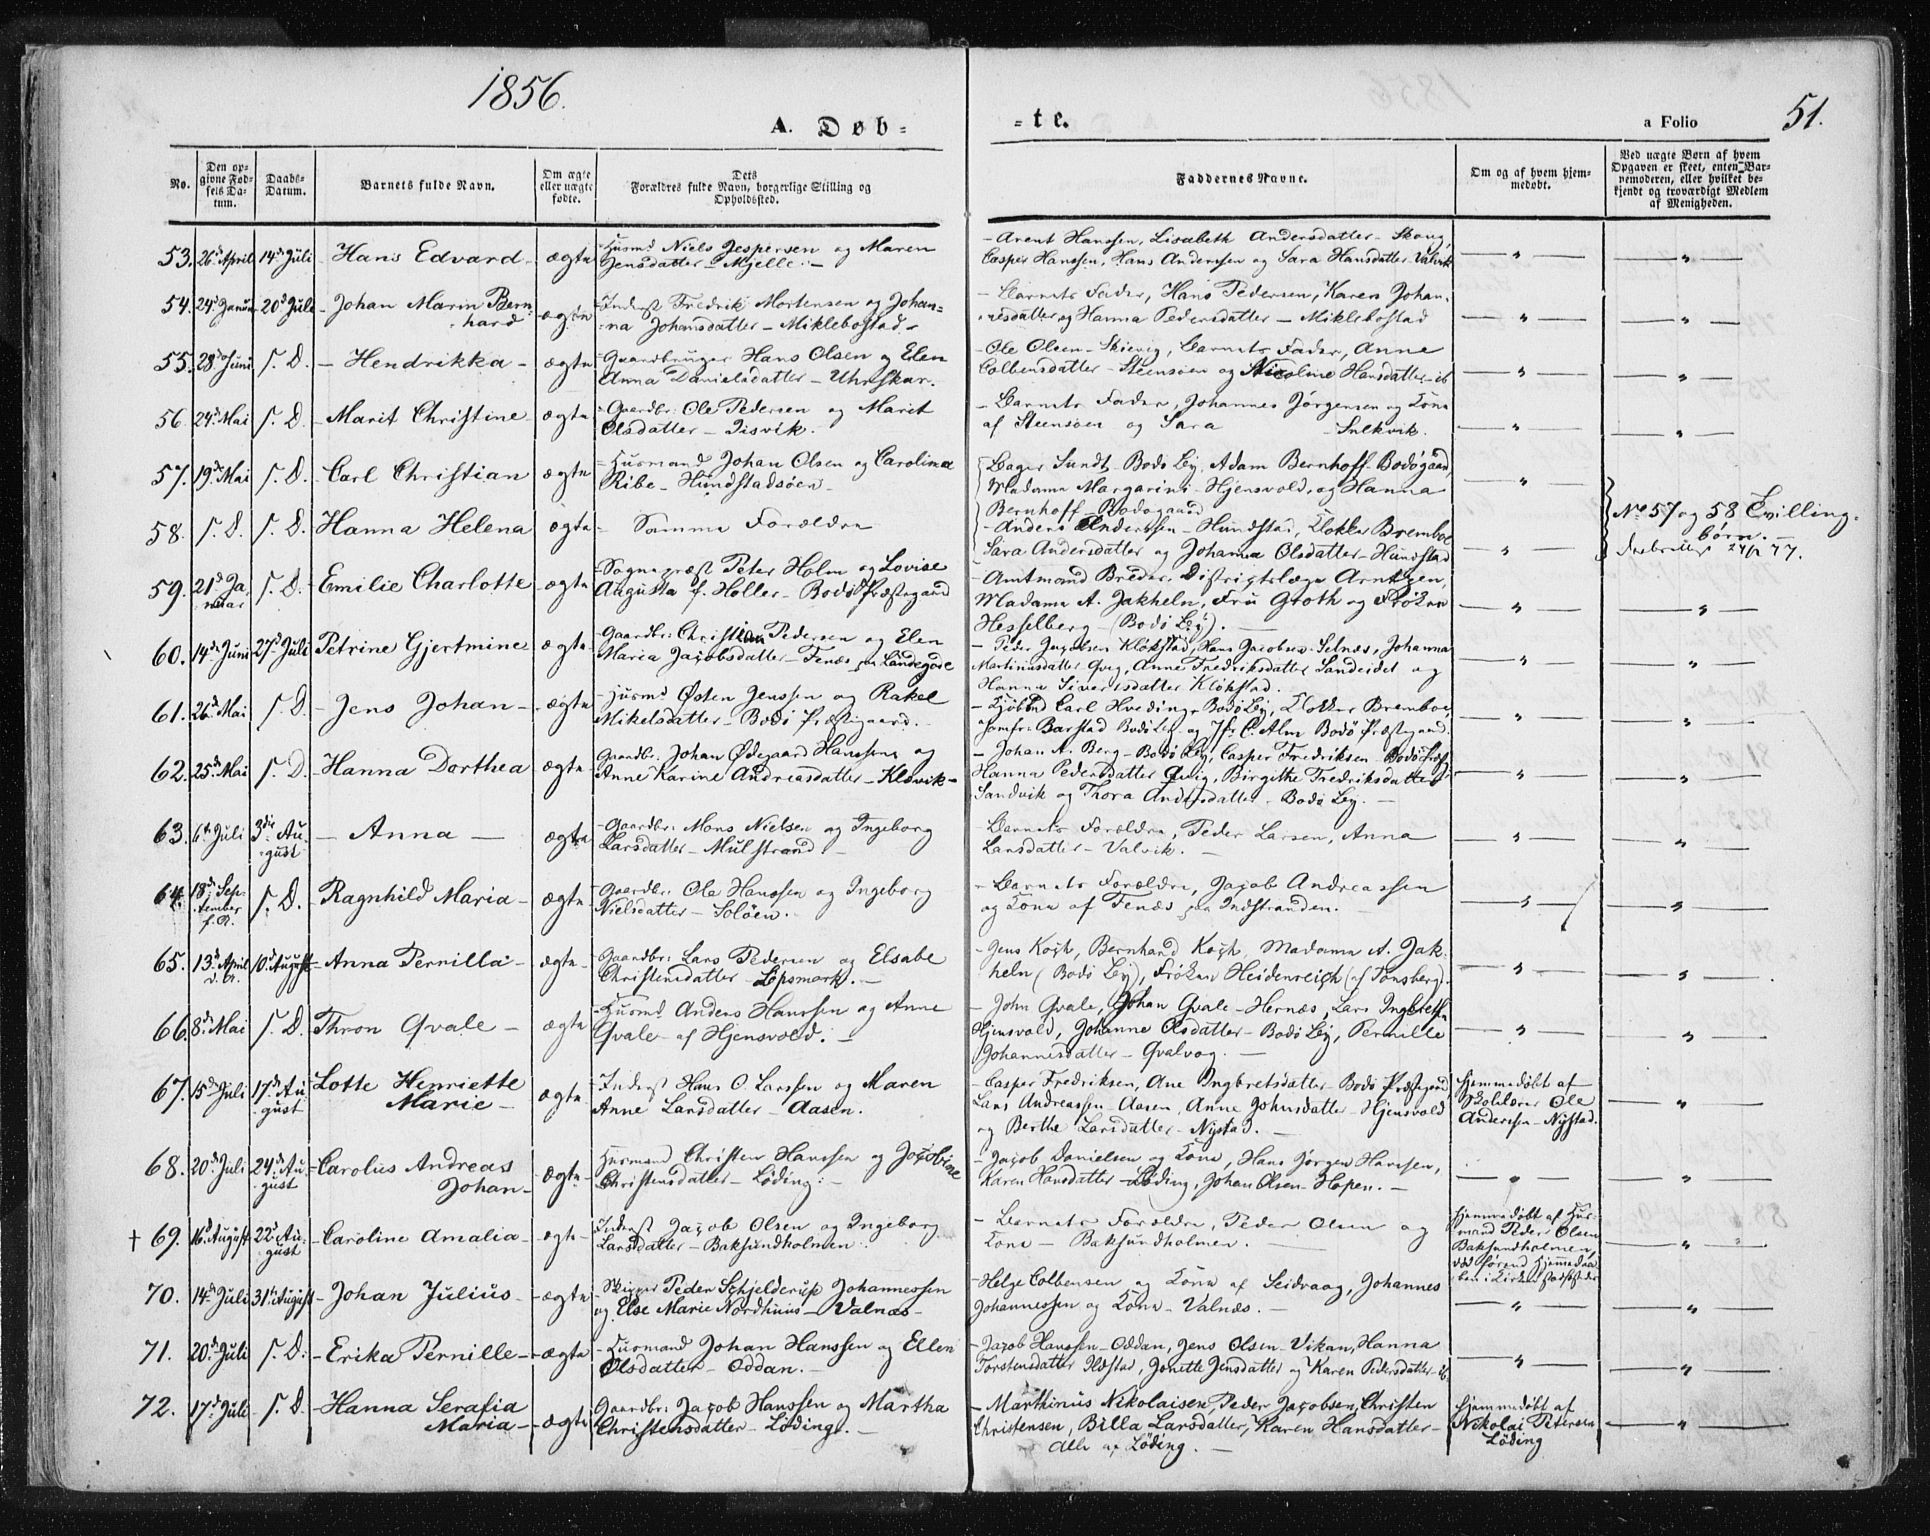 1856.
51.
A. Døb-
-te.
a Folio
No.
Den opgivne Fødsels Datum.
Daabs-Datum.
Barnets fulde Navn.
Om ægte eller uægte fødte.
Dets Forældres fulde Navn, borgerlige Stilling og Opholdssted.
Faddernes Navne.
Om og af hvem hjemmedøbt.
Ved uægte Børn af hvem Opgaven er skeet, enten Barnemoderen, eller hvilket bekjendt og troværdigt Medlem af Menigheden.
53. 26de April 14de Juli - Hans Edvard - ægte - Husmd Niels Jespersen og Maren
Jensdatter - Mjelle. -
- Arent Hanssen, Lisabeth Andersdatter - Skaug,
Casper Hanssen, Hans Anderssen og Sara Hansdatter - Valvik
54. 24de Januar 20de Juli - Johan Marin Bern-
hard - ægte - Inderst Fredrik Mortensen og Johan-
na Johansdatter - Miklebostad -
- Barnets Fader, Hans Pedersen, Karen Johan-
nesdatter og Hanna Pedersdatter - Miklebostad
55. 28de Juni S. D. - Hendrikka - ægte - Gaardbruger Hans Olsen og Elen
Anna Danielsdatter - Uhrskar.
- Ole Olsen - Skivig, Barnets Fader, Anne
Colbensdatter - Steensøen og Nicoline Hansdatter - ib
56. 24de Mai S. D. - Marit Christine - ægte - Gaardbr: Ole Pedersen og Marit
Olsdatter - Tisvik.
- Barnets Fader, Johannes Jørgensen og Kone
af Steensøen og Sara - Sulkvik.
57. 19de Mai S. D. - Carl Christian - ægte - Husmand Johan Olsen og Carolina
Ribe - Hundstadsøen -
Bager Sundt - Bodø By, Adam Bernhoff - Bodøgaard,
Madame Margarini - Hjensvold, og Hanna
Bernhoff - Bodøgaard
58. S. D. S. D. Hanna Helena ægte - Samme Forældre
- Anders Anderssen - Hundstad, Klokker Bremboe
Sara Andersdatter og Johanna Olsdatter - Hundstad
No 57 og 58 Tvilling-
børn. -
59. 21de Ja-
nuar S. D. - Emilie Charlotte - ægte - Sognepræst Peter Holm og Lovise
Augusta f. Holler - Bodø Præstegaard
- Amtmand Breder, Distrigtslæge Arntzen,
Madame A. Jakheln, Fru Groth og Frøken
Hesselberg - (Bodø By). -
60. 14de Juni 27de Juli - Petrine Gjertmine - ægte - Gaardbr: Christian Pedersen og Elen
Maria Jacobsdatter - Fenæs paa Landegode
- Peder Jacobsen Kløkstad, Hans Jacobsen - Selnæs, Johanna
Martinusdatter Qvig, Anne Fredriksdatter Sandeidet og
Hanna Siversdatter Kløkstad.
61. 26de Mai S. D. - Jens Johan - ægte - Husmd Østen Jenssen og Rakel
Mikelsdatter - Bodø Præstegaard. -
- Kjøbmd Carl Hveding - Bodø By, Klokker Bremboe,
Jomfr: Barstad Bodø By og Jfr C. Alm Bodø Præstegaard
62. 25de Mai S. D. - Hanna Dorthea ægte Gaardbr: Johan Ødegaard Hanssen og
Anne Karine Andreasdatter - Kløvik -
- Johan A. Berg - Bodø By, Casper Fredriksen - Bodø Præsg.
Hanna Pedersdatter Qvig, Birgithe Fredriksdatter
Sandvik og Thora Andersdatter - Bodø By. -
63. 6te Juli 3die Au-
gust - Anna - ægte - Gaardbr: Mons Nielsen og Ingeborg
Larsdatter - Mulstrand -
- Barnets Forældre, Peder Larsen, Anna
Larsdatter - Valvik. -
64. 18de Sep-
tember f. A. S. D. Ragnhild Maria - ægte - Gaardbr: Ole Hanssen og Ingeborg
Nielsdatter - Soløen. -
- Barnets Forældre, Jacob Andreassen
og Kone af Fenæs paa Indstranden. -
65. 13de April
d. A. 10de August - Anna Pernilla - ægte - Gaardbr: Lars Pedersen og Elsabe
Christensdatter - Løpsmark. -
- Jens Koch, Bernhard Koch, Madame A. Jak-
heln (Bodø By), Frøken Heidenreich (af Tønsberg).
66. 8de Mai S. D. Thron Qvale - ægte - Husmd Anders Hanssen og Anne
Qvale - af Hjensvold. -
- John Qvale, Johan Qvale - Hernæs, Lars Ingbretsen
Hjensvold, Johanne Olsdatter - Bodø By, Pernille
Johannesdatter - Qvalvog. -
67. 15de Juli 17de Au-
gust Lotte Henriette
Marie - ægte - Inderst Hans O. Larssen og Maren
Anne Larsdatter - Aasen.
- Casper Fredriksen, Ane Ingbretsdatter - Bodø Præstegaard,
Lars Andreassen - Aasen, Anne Johnsdatter - Hjensvold
og Berthe Larsdatter - Nystad. -
Hjemmedøbt af
Skolelærer Ole
Anderssen - Nystad.
68. 20de Juli 24de Au-
gust - Carolus Andreas
Johan - ægte - Husmand Christen Hanssen og Jacobine
Christensdatter - Løding: -
- Jacob Danielsen og Kone, Hans Jørgen Hanssen,
Karen Hansdatter - Løding, Johan Olsen - Hopen. -
† 69. 16de August 22de Au-
gust - Caroline Amalia - ægte - Inderst Jacob Olsen og Ingeborg
Larsdatter - Baksundholmen.
- Barnets Forældre, Peder Olsen og
Kone - Baksundholmen. -
Hjemmedøbt af Hus-
mand Peder Olsen
Baksundholmen,
70. 14de Juli 31te August - Johan Julius - ægte - Skipper Peder Schjelderup Johannessen
og Else Marie Nordhuus - Valnæs -
- Helge Colbensen og Kone af Seivaag, Johannes
Johannessen og Kone - Valnæs. -
71. 20de Juli S. D. - Erika Pernille - ægte - Husmand Johan Hanssen og Ellen
Olsdatter - Oddan. -
- Jacob Hanssen - Oddan, Jens Olsen - Vikan, Hanna
Torstensdatter Ildstad, Jonette Jensdatter og Karen Pedersdatter - ib
72. 17de Juli S. D - Hanna Serafia
Maria - ægte Gaardbr: Jacob Hanssen og Martha
Christensdatter - Løding. -
- Marthinius Nikolaisen, Peder Jacobsen, Christen
Christensen, Billa Larsdatter, Karen Hansdatter -
Alle af Løding. -
Hjemmedøbt af
Nikolai Petersen
Løding